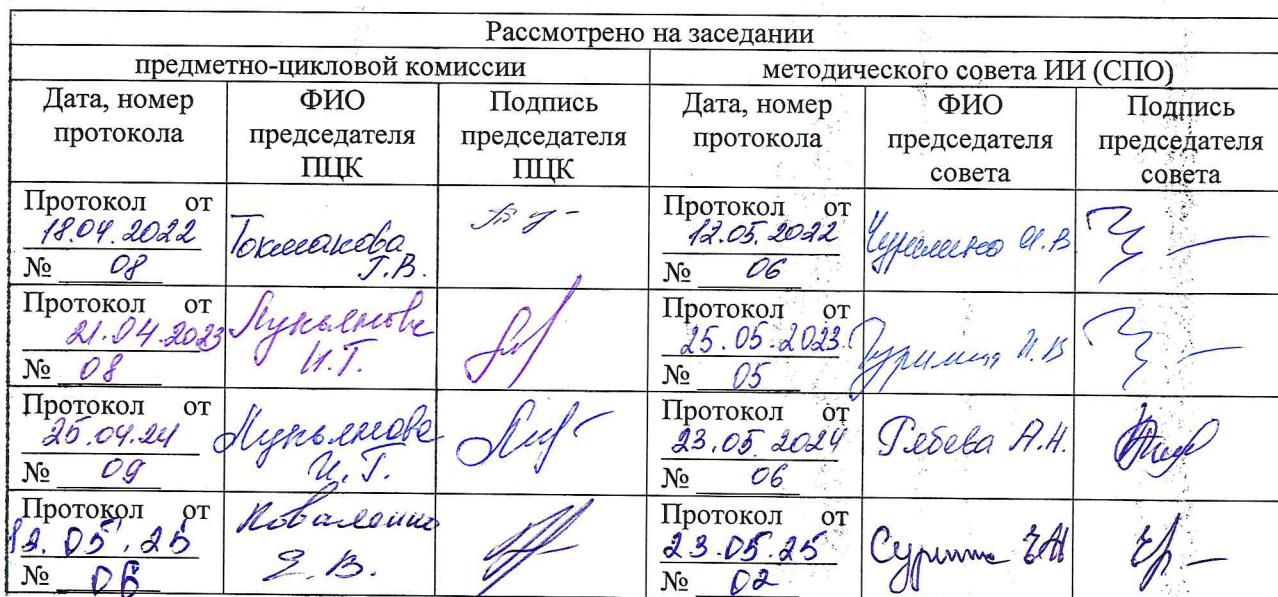 Рассмотрено на заседании
предметно-цикловой комиссии методического совета ИИ (СПО)
Дата, номер протокола ФИО председателя ПЦК Подпись председателя ПЦК Дата, номер протокола ФИО председателя совета Подпись председателя совета
Протокол от 18.04.2022 № 08 Токмакова Г.В. Протокол от 12.05.2022 № 06 И.В.
Протокол от 21.04.2023 № 08 Лукьянова И.Г. Протокол от 25.05.2023 № 05 И.В.
Протокол от 25.04.24 № 09 Лукьянова И.Г. Протокол от 23.05.2024 № 06 А.Н.
Протокол от 12.05.25 № 06 Е.В. Протокол от 23.05.25 № 02